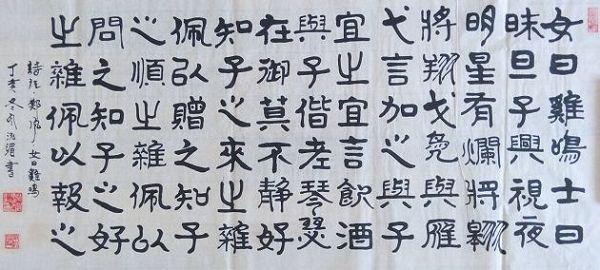 女曰雞鳴士曰
昧旦子興視夜
明星有爛將翱
將翔弋鳧與雁
弋言加之與子
宜之宜言飲酒
與子偕老琴瑟
在御莫不静好
知子之來之雜
佩以贈之知子
之順之雜佩以
問之知子之好
之雜佩以報之
詩經鄭風女曰雞鳴
丁亥冬月書